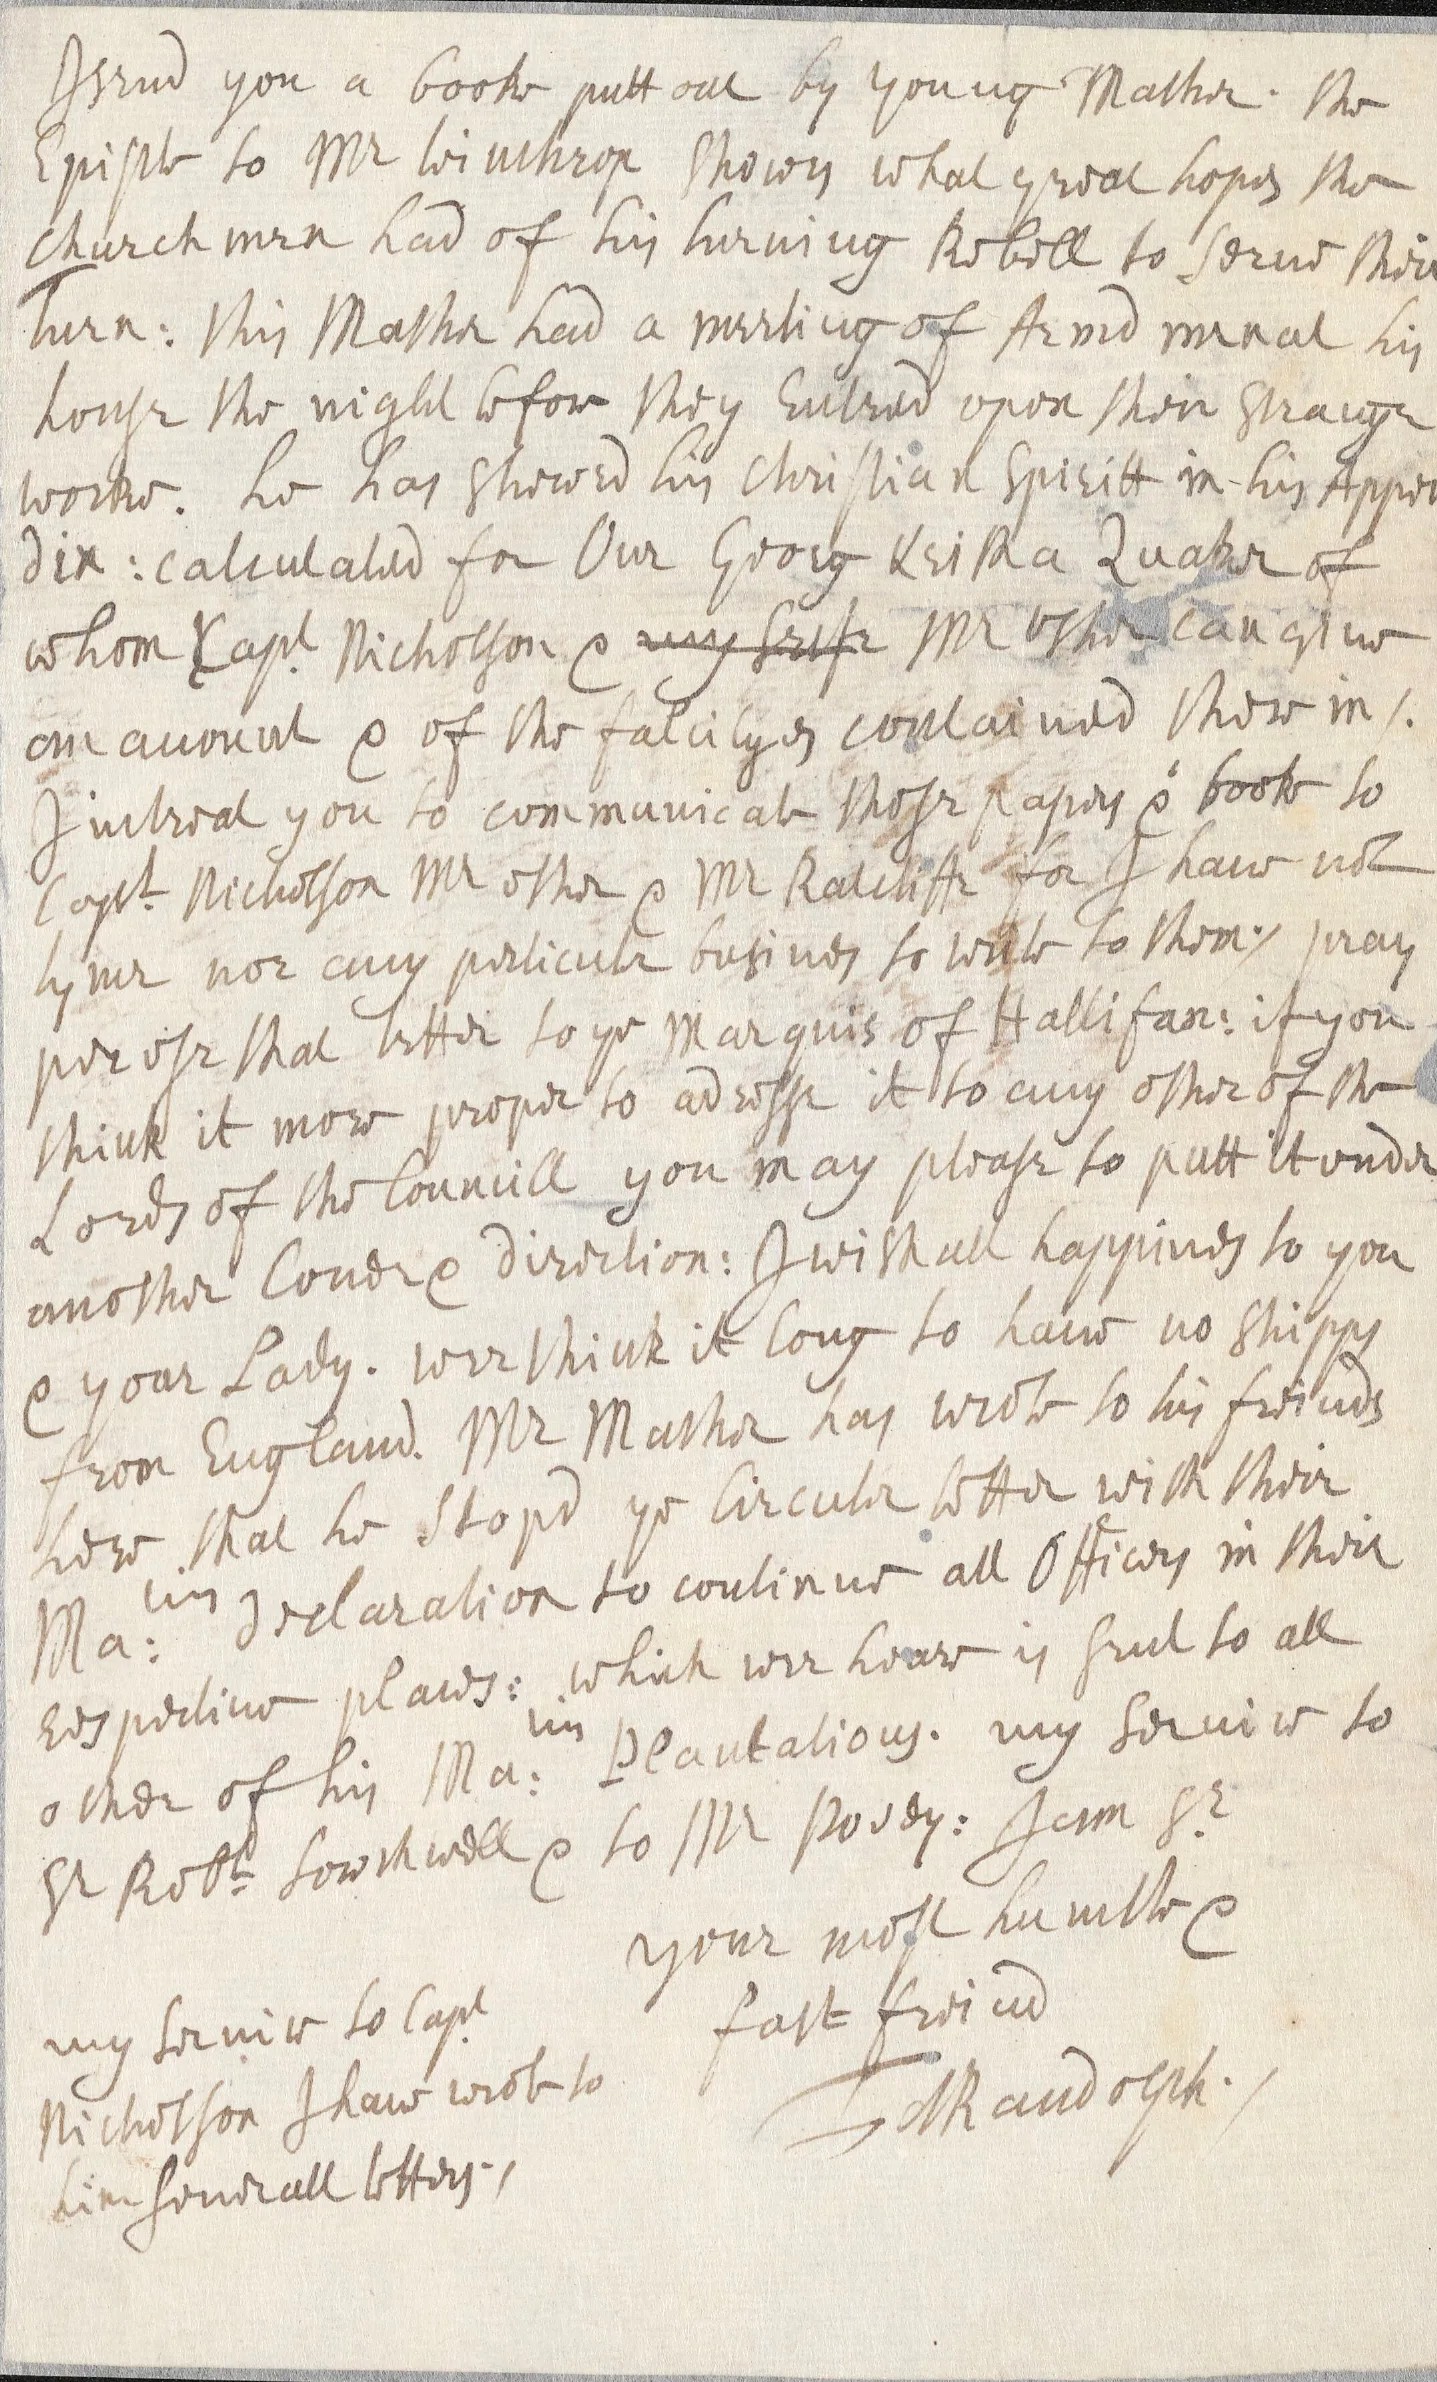 I send you a booke putt out by young Mather. the
Epistle to Mr Winthrop shews what great hopes the
church men had of his turning Rebell to serve their
Turn: this Mather had a meeting of Armd men at his
house the night before they Entred upon their strange
worke. he has shewed his christian spiritt in his Appen
dix: calculated for Our Georg Keith a Quaker of
whom Capt. Nicholson & my selfe Mr Usher can give
an account & of the falcityes contained there in/.
I intreat you to communicate these papers & booke to
Capt. Nicholson Mr Usher & Mr Ratcliffe for I have not
tyme nor any perticuler busines to write to them:/ pray
peruse that letter to ye Marquis of Hallifax: if you
think it more proper to adresse it to any other of the
Lords of the Councill you may please to putt it under
another Cover & direction: I wish all happines to you
& your Lady. wee think it long to have no shipps
from England. Mr Mather has wrote to his freinds
here that he stopd ye Circuler letter with their
Ma:ties Declaration to continue all Officers in their
respective places: which wee heare is sent to all
other of his Ma:ties Plantations. my service to
Sr Robt. Sowthwell & to Mr Povey: I am Sr.
your most humble &
fast freind
Ed Randolph./
my service to Capt
Nicholson I have wrote to
him severall letters./